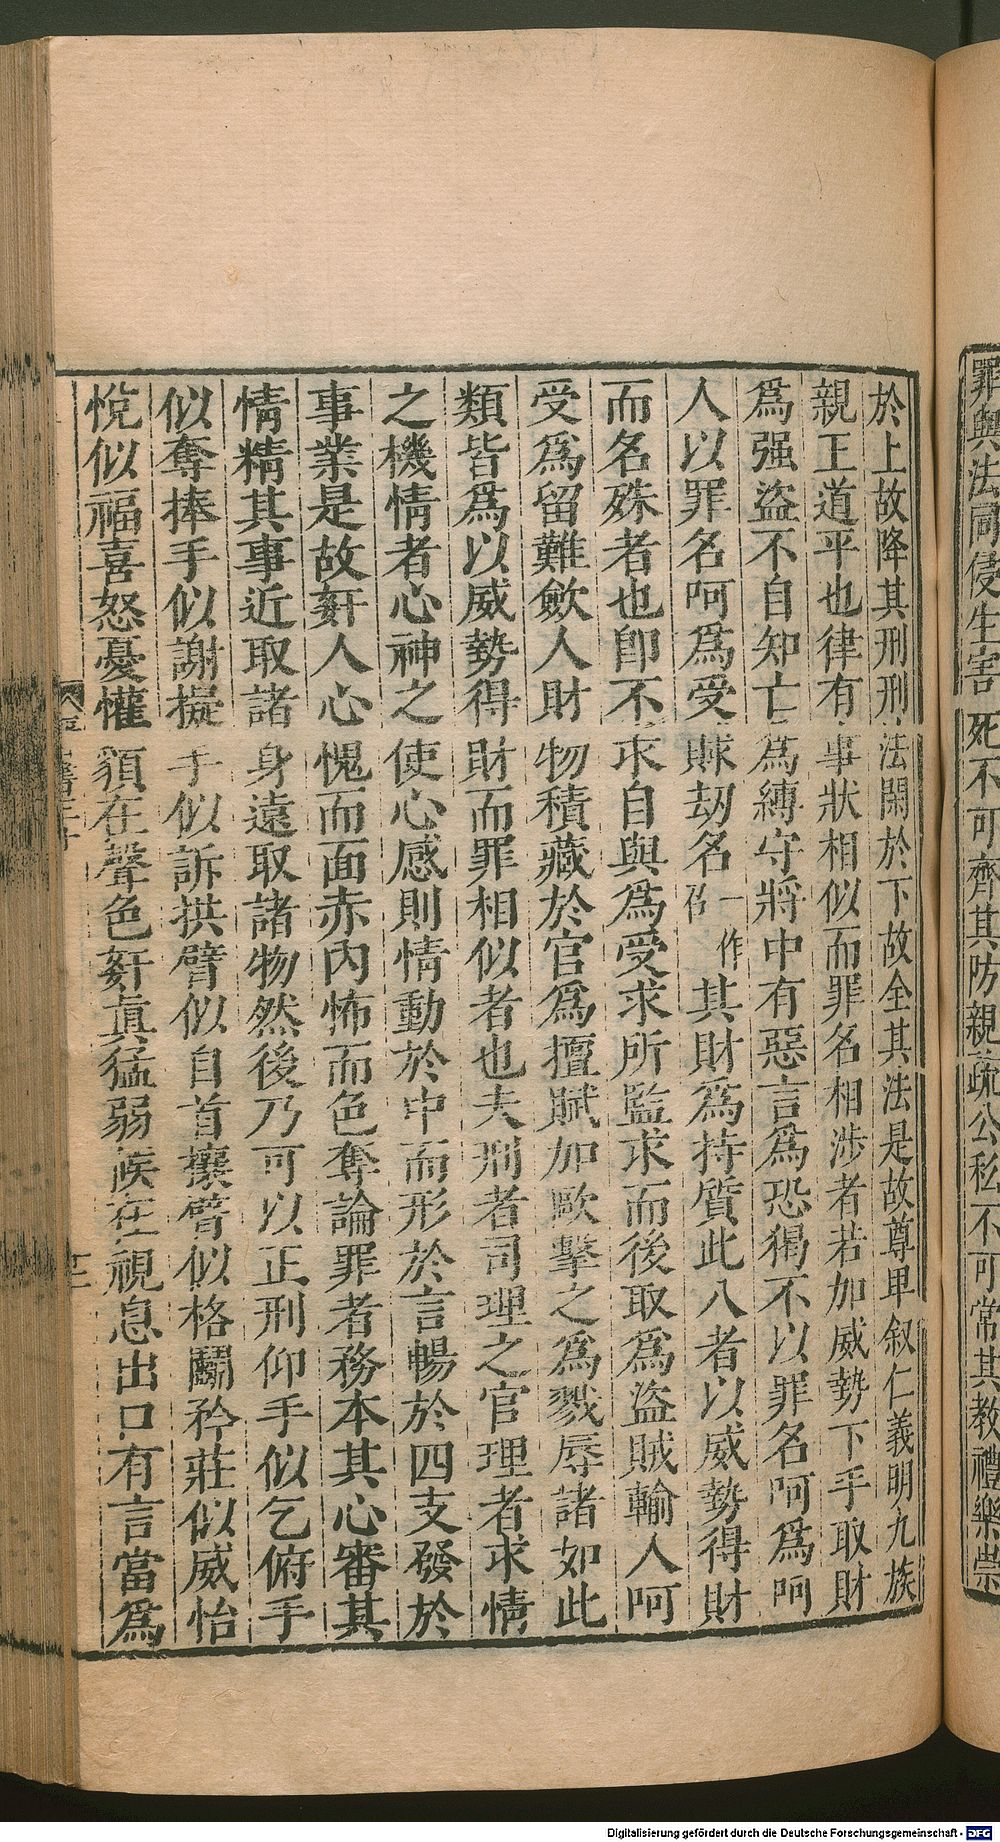 罪與法同侵生害死不可齊其防親疏公私不可常其教禮樂崇
於上故降其刑刑法閑於下故全其法是故尊卑叙仁義明九族
親王道平也律有事狀相似而罪名相涉者若加威勢下手取財
為强盜不自知亡為縛守將中有惡言為恐猲不以罪名呵為呵
人以罪名呵為受賕劫名一作其財為持質此八者以威勢得財
而名殊者也即不求自與為受求所監求而後取為盜賊輸入呵
受為留難斂人財物積藏於官為擅賦加歐擊之為戮辱諸如此
類皆爲以威勢得財而罪相似者也夫刑者司理之官理者求情
之機情者心神之使心感則情動於中而形於言暢於四支發於
事業是故姧人心愧而面赤內怖而色奪論罪者務本其心審其
情精其事近取諸身遠取諸物然後乃可以正刑仰手似乞俯手
似奪捧手似謝擬手似訴拱臂似自首攘臂似格鬭矜莊似威怡
悅似福喜怒憂懽貌在聲色姧真猛弱候在視息出口有言當爲
Digitalisierung gefördert durch die Deutsche Forschungsgemeinschaft - DFG